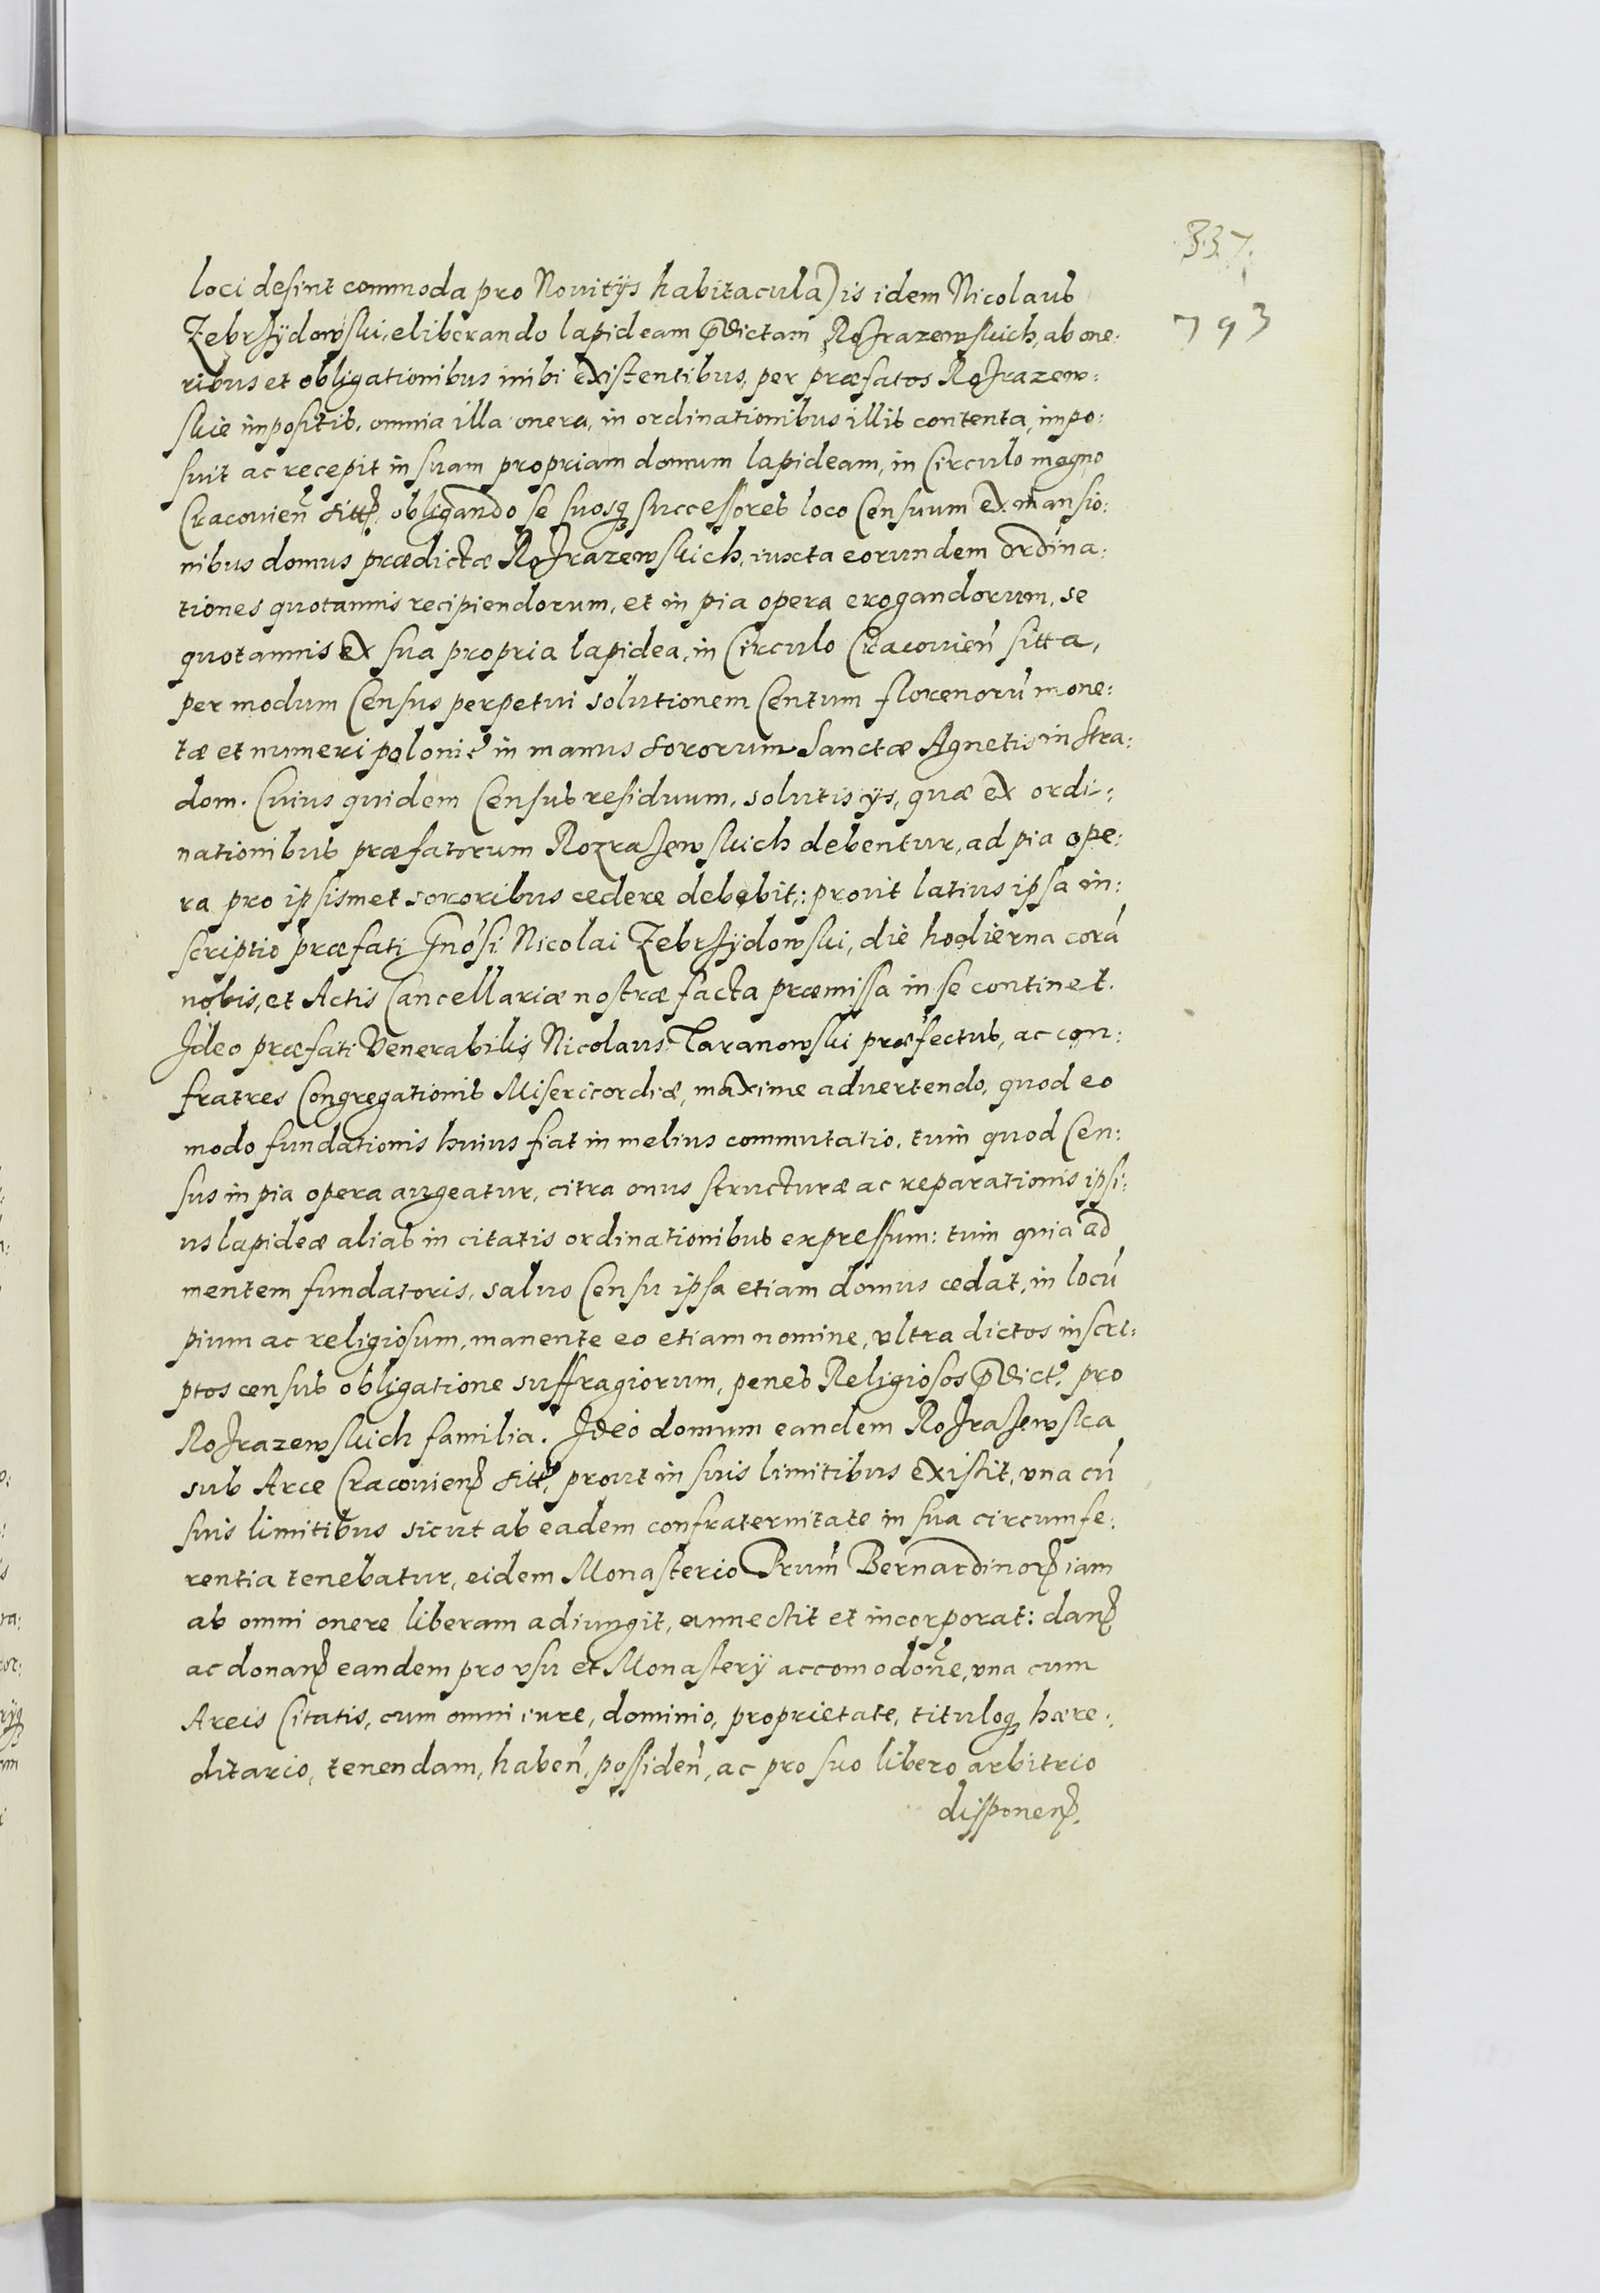 337.
793
loci desint commoda pro Nouitijs habitacula) is idem Nicolaus
Zebrzÿdowski, eliberando lapideam p̄dictam Rozrazewskich, ab one:
ribus et obligationibus inibi existentibus, per præfatos Rozrazew:
skie impositis, omnia illa onera, in ordinationibus illis contenta, impo:
suit ac recepit in suam propriam domum lapideam, in Circulo magno
Cracouień sitt, obligando se suosq; successores loco Censuum ex mansio:
nibus domus prædictæ Rozrazewskich, iuxta eorundem ordina:
tiones quotannis recipiendorum, et in pia opera erogandorum, se
quotannis ex sua propria lapidea, in Circulo Cracouień sitta,
per modum Census perpetui solutionem Centum florenorū mone:
tæ et numeri polonic̄ in manus sororum Sanctæ Agnetis in stra:
dom. Cuius quidem Census residuum, solutis ijs, quæ ex ordi:
nationibus præfatorum Rozrazewskich debentur, ad pia ope:
ra pro ipsismet sororibus cedere debebit: prout latius ipsa in:
scriptio præfati Gnosi Nicolai Zebrzÿdowski, die hodierna corā
nobis, et Actis Cancellariæ nostræ facta præmissa in se continet.
Ideo præfati Venerabilis Nicolaus Taranowski præfectus, ac con:
fratres Congregationis Misericordiæ, maxime advertendo, quod eo
modo fundationis huius fiat in melius commutatio, tum quod Cen:
sus in pia opera augeatur, citra onus structuræ ac reparationis ipsi:
us lapideæ alias in citatis ordinationibus expressum: tum quia ad
mentem fundatoris, saluo Censu ipsa etiam domus cedat, in locū
pium ac religiosum, manente eo etiam nomine, vltra dictos inscri:
ptos census obligatione suffragiorum, penes Religiosos p̄dict, pro
Rozrazewskich familia. Ideo domum eandem Rozrazewska
sub Arce Cracouien sitt, prout in suis limitibus existit, vna cū
suis limitibus sicut ab eadem confraternitate in sua circumfe:
rentia tenebatur, eidem Monasterio Prum̄ Bernardinor iam
ab omni onere liberam adiungit, annectit et incorporat: dan
ac donan eandem pro vsu et Monasterÿ accomodōne, vna cum
Areis Citatis, cum omni iure, dominio, proprietate, tituloq; hære:
ditario, tenendam, habeń, possideń, ac pro suo libero arbitrio
disponen.